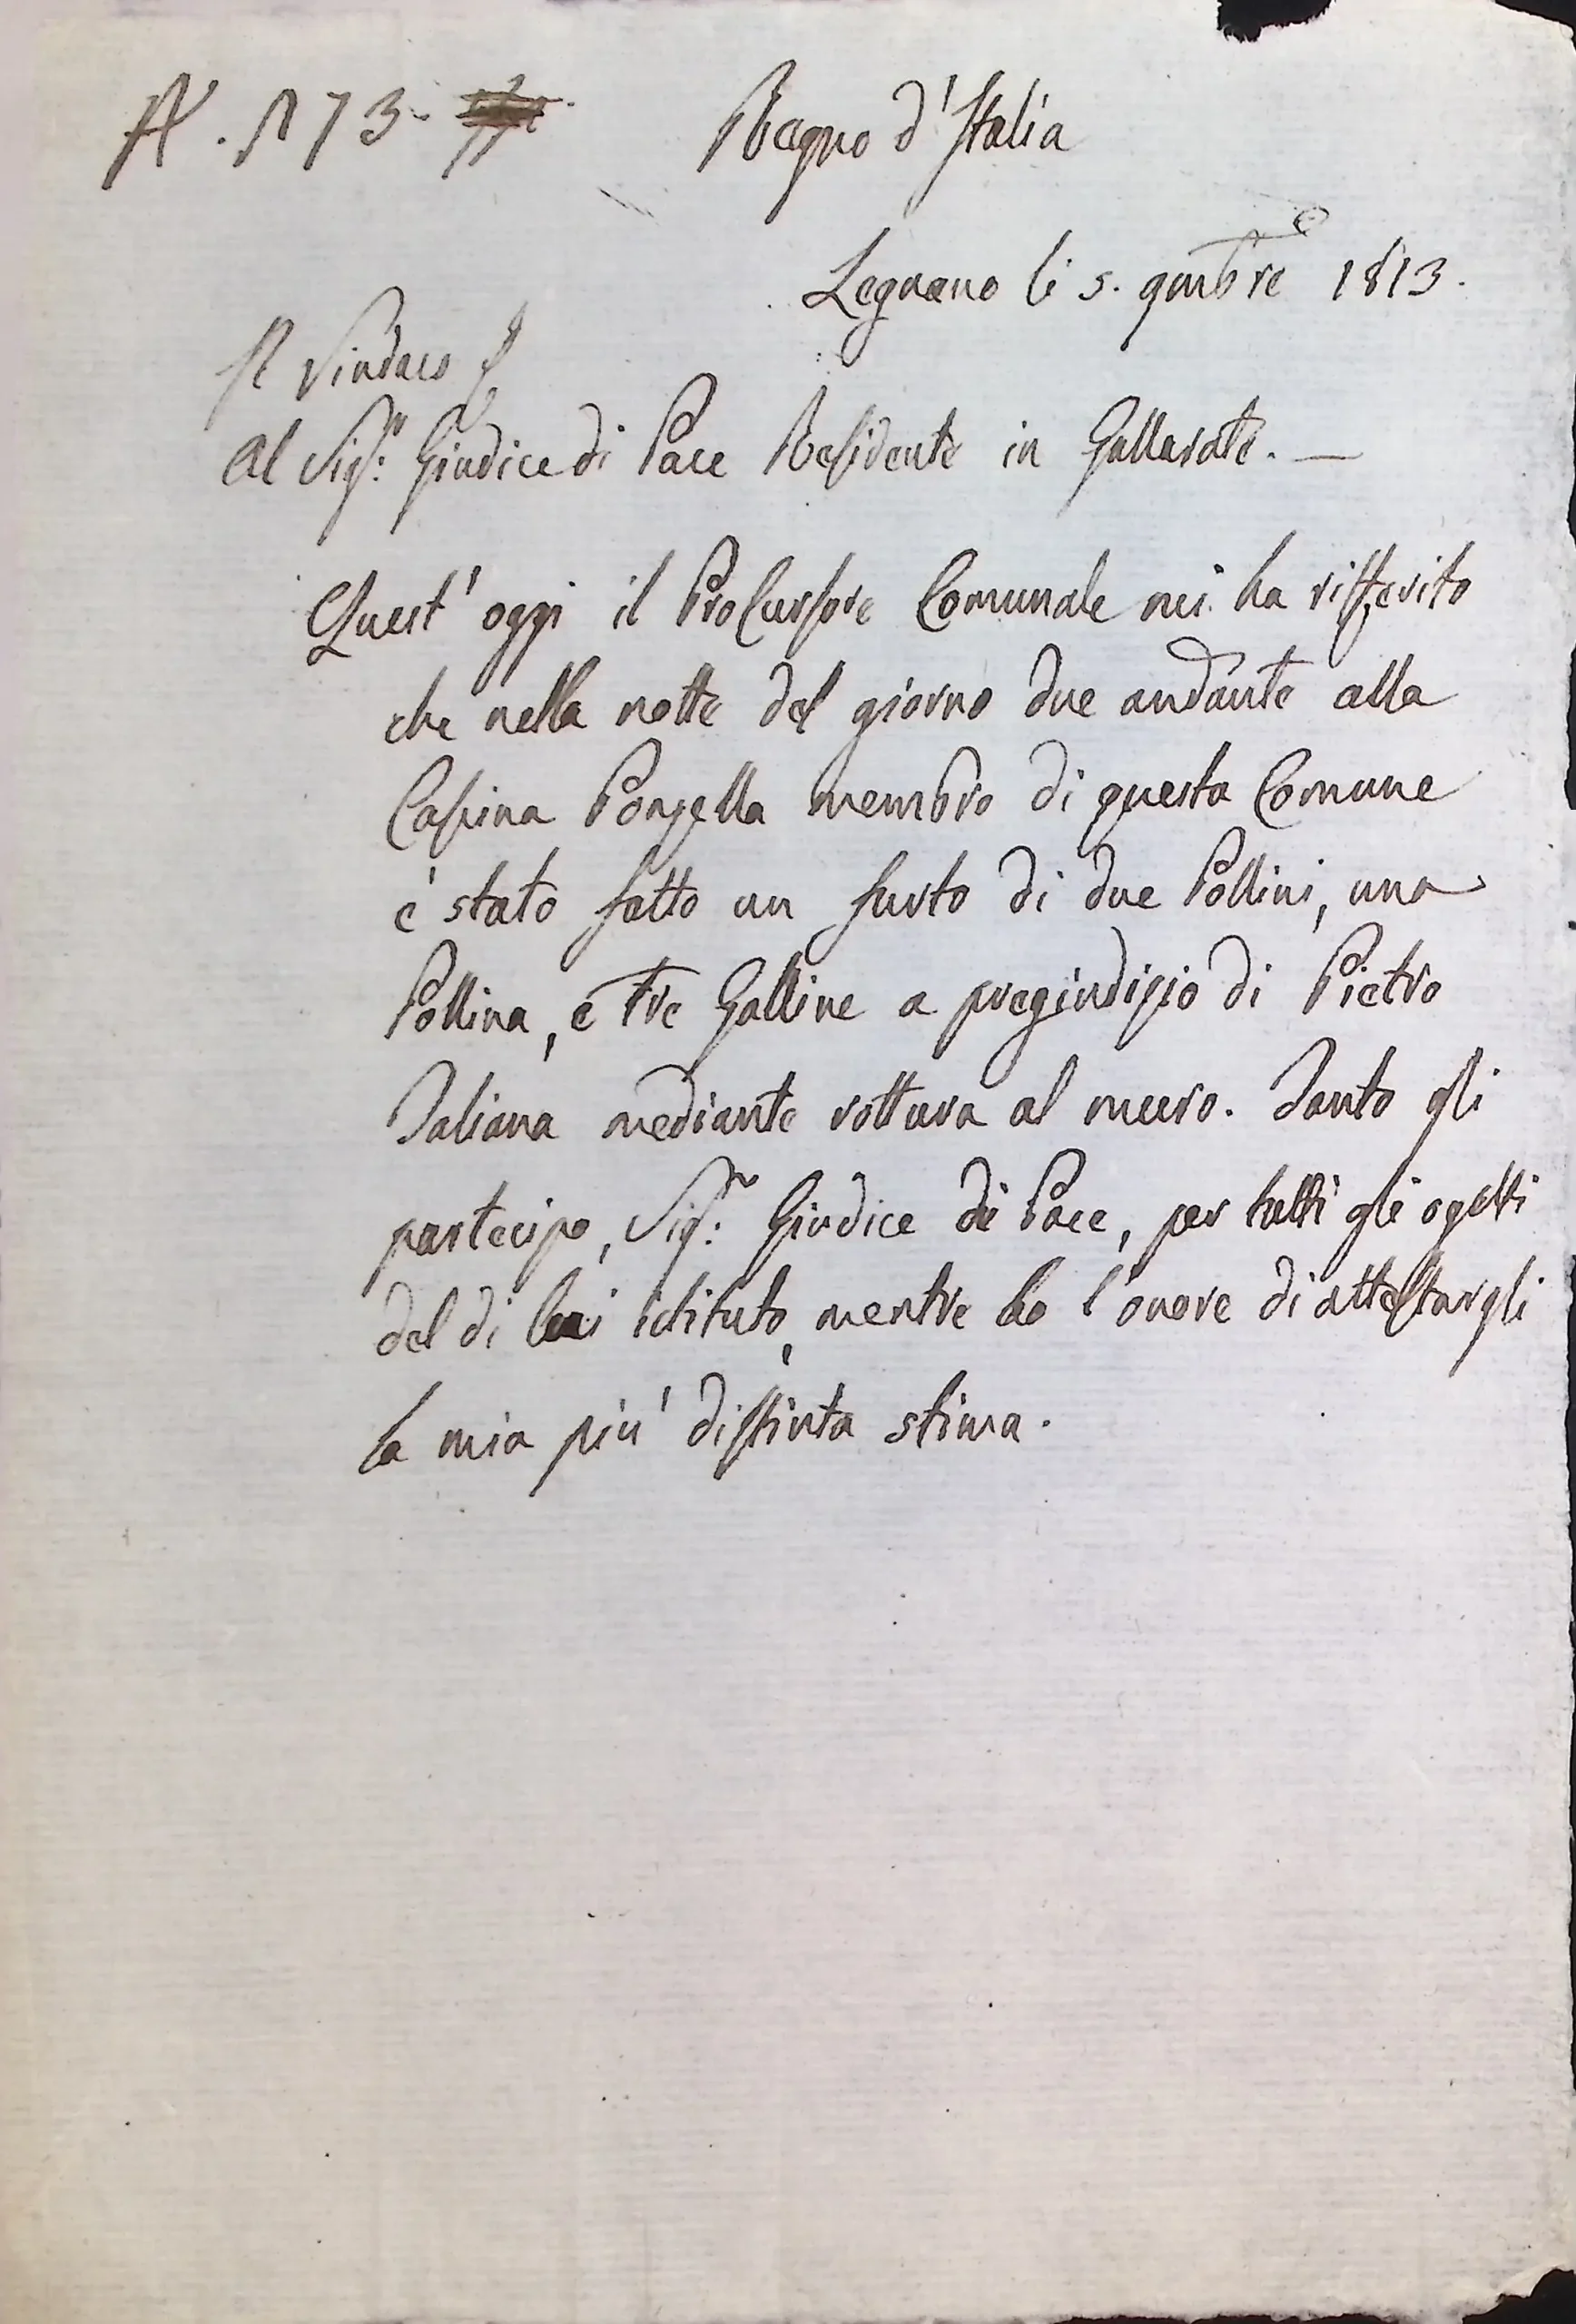 N. 173.
Regno d'Italia
Legnano li 5. 9mbre 1813.
Il Sindaco
Al Sigr: Giudice di Pace Residente in Gallarate. —
Quest'oggi il ProCursore Comunale mi ha rifferito
che nella notte del giorno due andante alla
Cassina Ponzella membro di questa Comune
è stato fatto un furto di due Pollini, una
Pollina, e tre Galline a pregiudizio di Pietro
Taliana mediante rottura al muro. Tanto gli
partecipo, Sigr: Giudice di Pace, per tutti gli ogetti
del di lui istituto, mentre ho l'onore di attestargli
la mia più distinta stima.